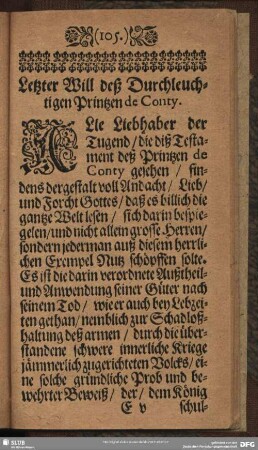 (105.)
Letzter Will deß Durchleuch-
tigen Printzen de Conty.
ALle Liebhaber der
Tugend/die diß Testa-
ment deß Printzen de
Conty gesehen/fin-
dens dergestalt voll Andacht/Lieb/
und Forcht Gottes/daß es billich die
gantze Welt lesen/sich darin bespie-
gelen/und nicht allein grosse Herren/
sondern jederman auß diesem herrli-
chen Exempel Nutz schöpffen solte.
Es ist die darin verordnete Außtheil-
und Anwendung seiner Güter nach
seinem Tod/wie er auch bey Lebzei-
ten gethan/nemblich zur Schadloß-
haltung deß armen/durch die über-
standene schwere innerliche Kriege
jämmerlich zugerichteten Volcks/ei-
ne solche gründliche Prob und be-
wehrter Beweiß/der/dem König
E v schul-
SLUB
DFG